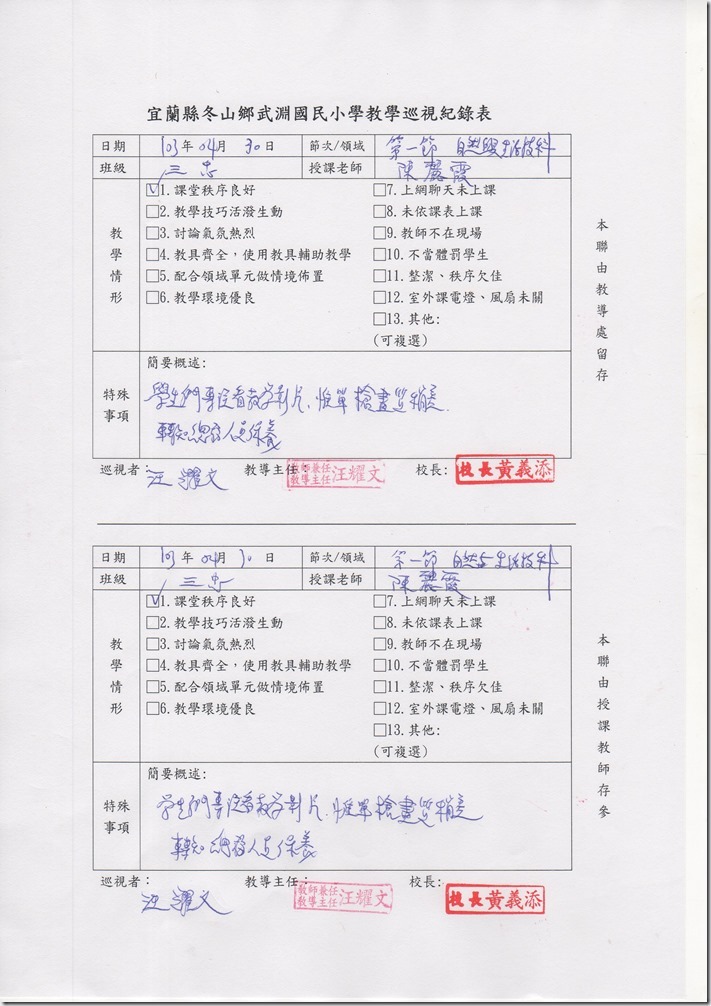 宜蘭縣冬山鄉武淵國民小學教學巡視紀錄表
日期 103 年 04 月 30 日 節次/領域 第一節 自然與生活技科
班級 三忠 授課老師 陳麗霞
教學情形
☑1.課堂秩序良好 □7.上網聊天未上課
□2.教學技巧活潑生動 □8.未依課表上課
□3.討論氣氛熱烈 □9.教師不在現場
□4.教具齊全，使用教具輔助教學 □10.不當體罰學生
□5.配合領域單元做情境佈置 □11.整潔、秩序欠佳
□6.教學環境優良 □12.室外課電燈、風扇未關
□13.其他:
(可複選)
特殊事項
簡要概述:
學生們專注看教學影片、惟單槍畫質稍差
轉知總務人員保養
巡視者： 汪耀文 教導主任： 教師兼任教導主任 汪耀文 校長: 校長黃義添
本聯由教導處留存
日期 103 年 04 月 30 日 節次/領域 第一節 自然與生活技科
班級 三忠 授課老師 陳麗霞
教學情形
☑1.課堂秩序良好 □7.上網聊天未上課
□2.教學技巧活潑生動 □8.未依課表上課
□3.討論氣氛熱烈 □9.教師不在現場
□4.教具齊全，使用教具輔助教學 □10.不當體罰學生
□5.配合領域單元做情境佈置 □11.整潔、秩序欠佳
□6.教學環境優良 □12.室外課電燈、風扇未關
□13.其他:
(可複選)
特殊事項
簡要概述:
学生們專注看教学影片、惟單槍畫質稍差
轉知總務人員保養
巡視者： 汪耀文 教導主任： 教師兼任教導主任 汪耀文 校長: 校長黃義添
本聯由授課教師存參